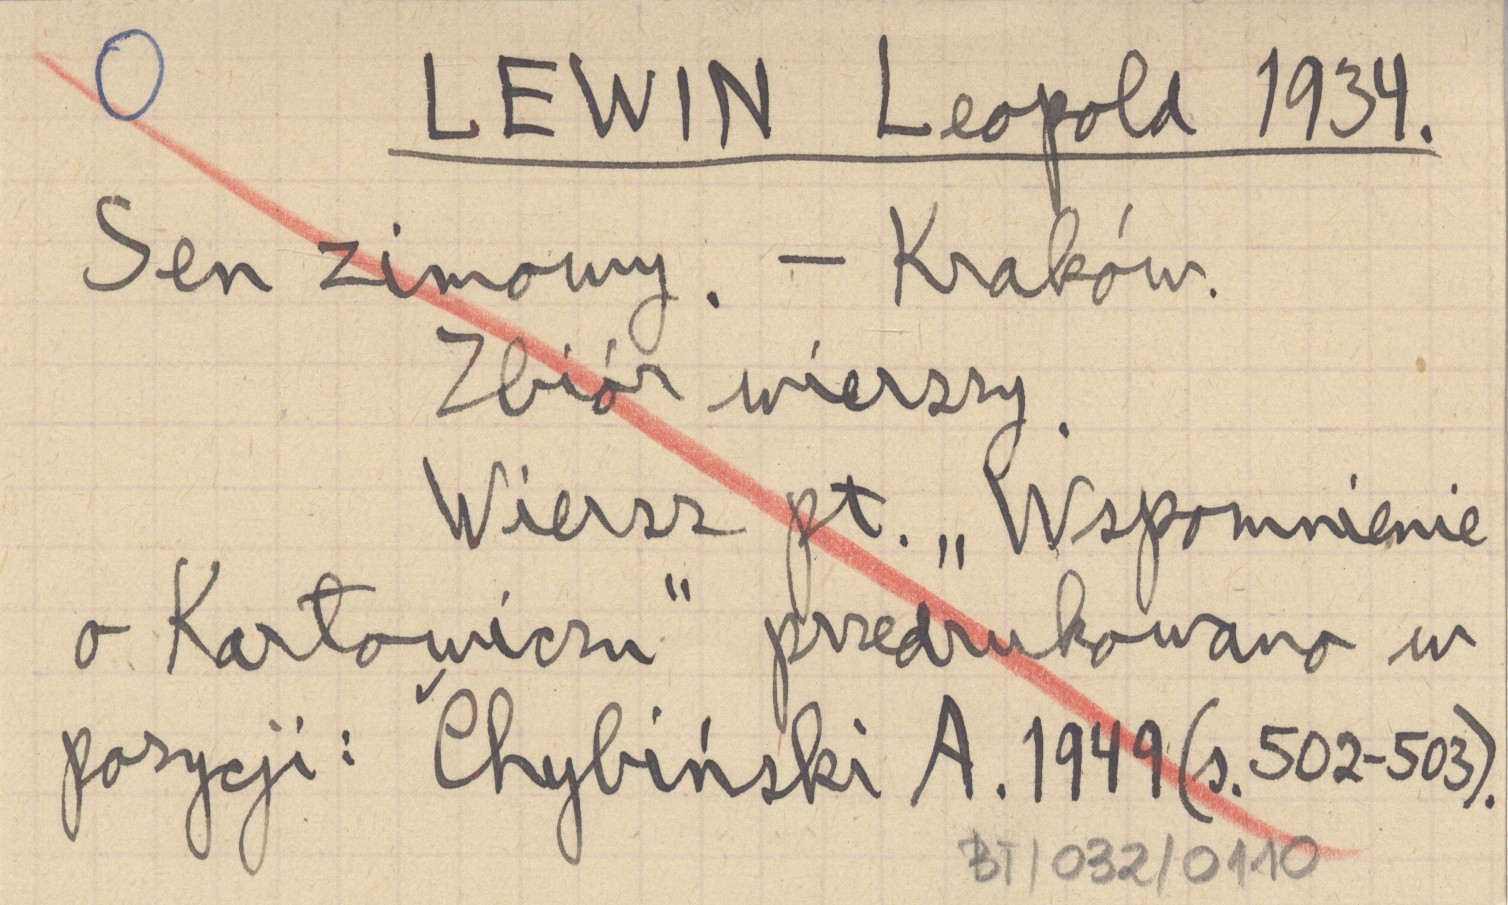 LEWIN Leopold 1934.
Sen zimowy. — Kraków.
Zbiór wierszy.
Wiersz pt. „Wspomnienie
o Karłowiczu" przedrukowano w
pozycji: Chybiński A. 1949 (s. 502-503).
BT/032/0110